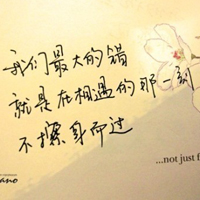 我们最大的错
就是在相遇的那一刻
不擦身而过
...not just f
ano